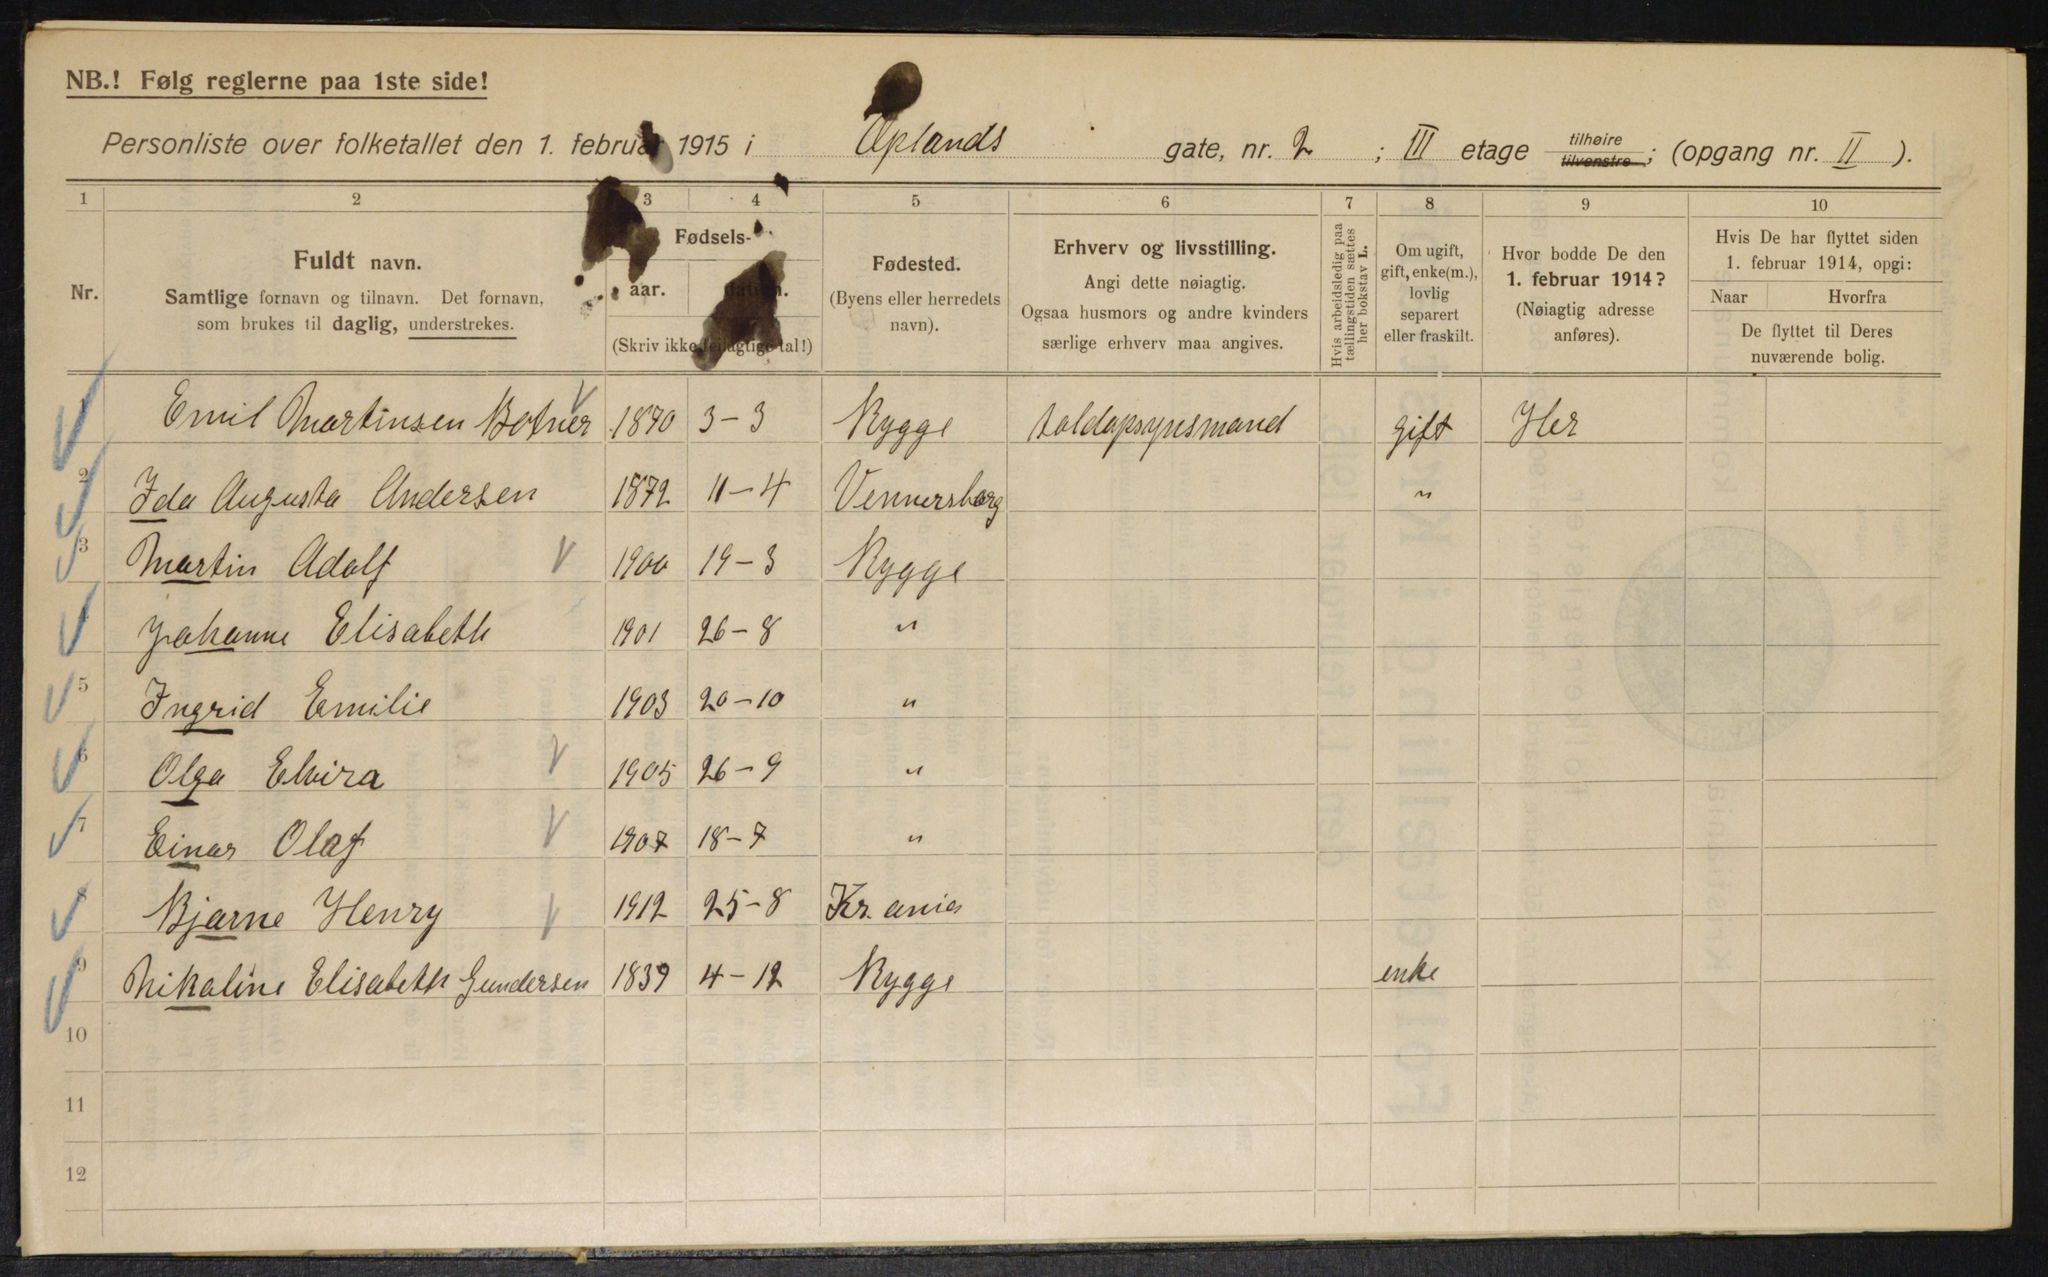 NB.! Følg reglerne paa 1ste side!
Personliste over folketallet den 1. februar 1915 i Oplands gate, nr. 2 ; III etage tilhøire tilvenstre ; (opgang nr. II ).
1 2 3 4 5 6 7 8 9 10
Nr.
Fuldt navn.
Samtlige fornavn og tilnavn. Det fornavn,
som brukes til daglig, understrekes.
Fødsels-
aar. datum.
(Skriv ikke feilagtige tal!)
Fødested.
(Byens eller herredets
navn).
Erhverv og livsstilling.
Angi dette nøiagtig.
Ogsaa husmors og andre kvinders
særlige erhverv maa angives.
Hvis arbeidsledig paa
tællingstiden sættes
her bokstav L.
Om ugift,
gift, enke(m.),
lovlig
separert
eller fraskilt.
Hvor bodde De den
1. februar 1914?
(Nøiagtig adresse
anføres).
Hvis De har flyttet siden
1. februar 1914, opgi:
Naar Hvorfra
De flyttet til Deres
nuværende bolig.
1 Emil Martinsen Botner 1870 3-3 Rygge toldopsynsmand gift Her
2 Ida Augusta Andersen 1872 11-4 Vennersborg "
3 Martin Adolf 1900 19-3 Rygge
4 Johanne Elisabeth 1901 26-8 "
5 Ingrid Emilie 1903 20-10 "
6 Olga Elvira 1905 26-9 "
7 Einar Olaf 1907 18-7 "
8 Bjarne Henry 1912 25-8 Kr.ania
9 Nikoline Elisabeth Gundersen 1839 4-12 Rygge enke
10
11
12